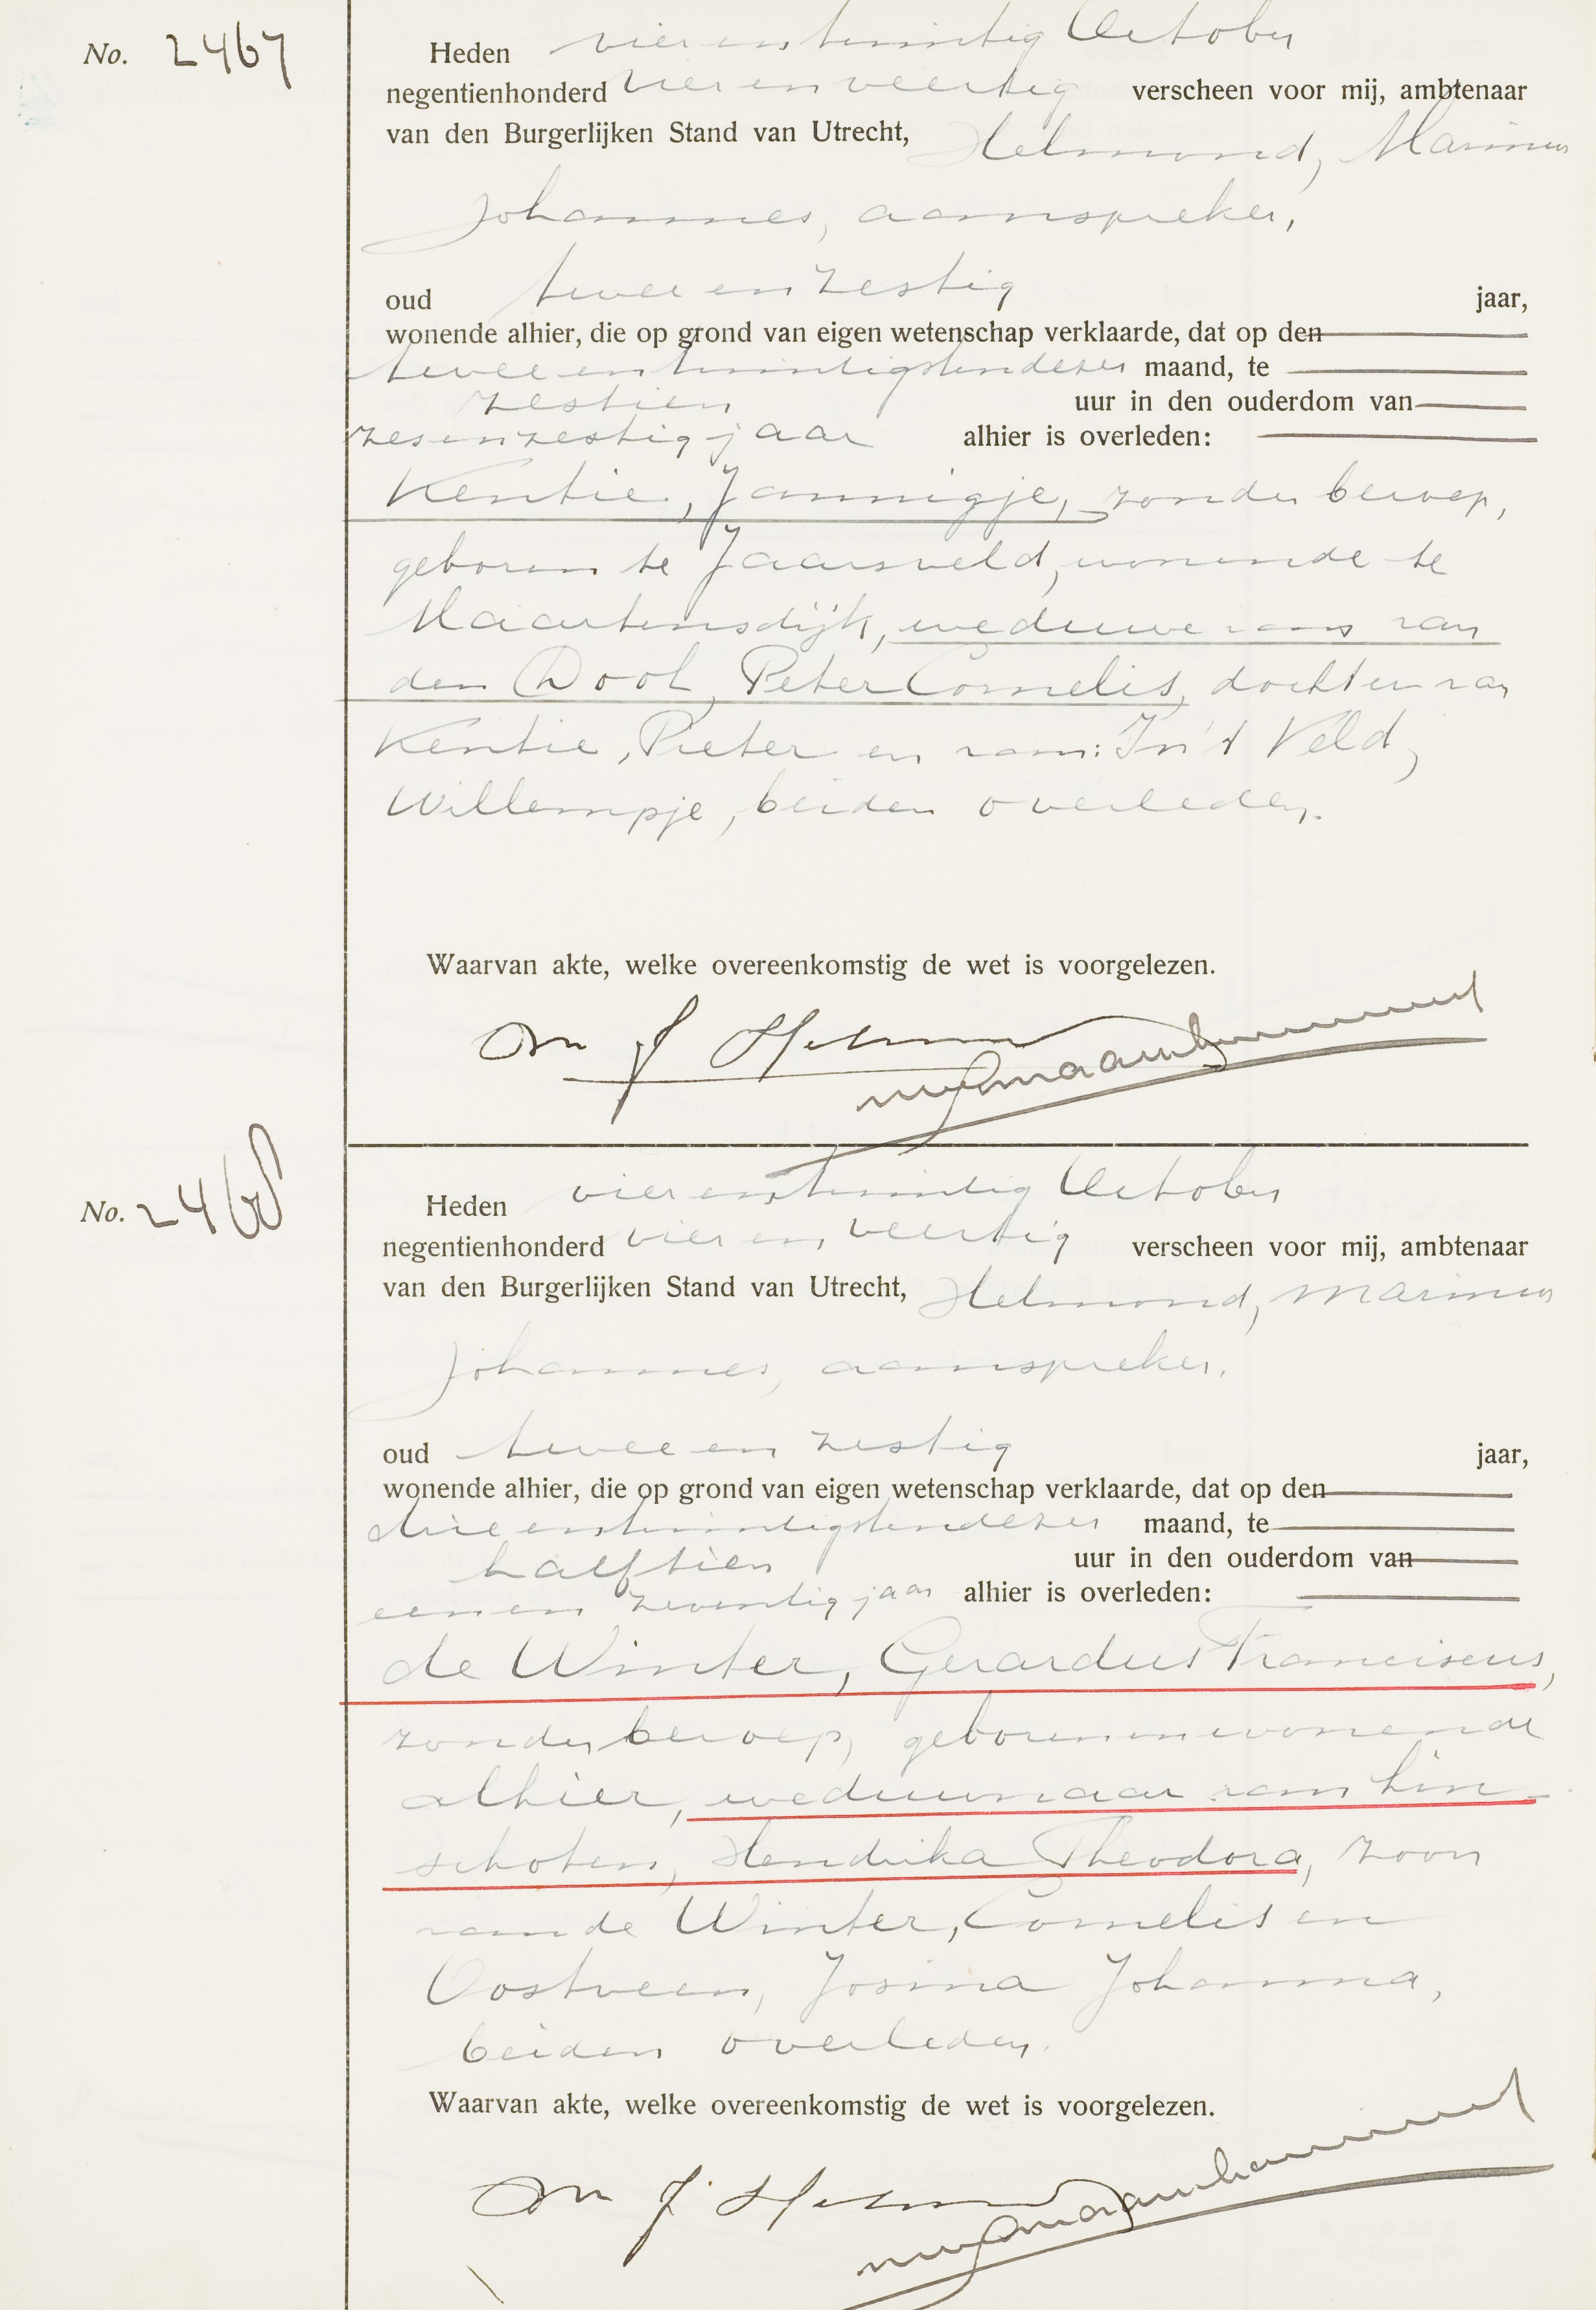 No. 2467
Heden vier en twintig October
negentienhonderd vier en veertig verscheen voor mij, ambtenaar
van den Burgerlijken Stand van Utrecht, Helmond, Marinus
Johannes, aanspreker,
oud twee en zestig jaar,
wonende alhier, die op grond van eigen wetenschap verklaarde, dat op den
twee en twintigsten dezer maand, te
zestien uur in den ouderdom van
zes en zestig jaar alhier is overleden:
Kentie, Jannigje, zonder beroep,
geboren te Jaarsveld, wonende te
Maartensdijk, weduwe van van
den Dool, Peter Cornelis, dochter van
Kentie, Pieter en van: In 't Veld,
Willempje, beiden overleden.
Waarvan akte, welke overeenkomstig de wet is voorgelezen.
M J Helmond
No. 2468
Heden vier en twintig October
negentienhonderd vier en veertig verscheen voor mij, ambtenaar
van den Burgerlijken Stand van Utrecht, Helmond, Marinus
Johannes, aanspreker.
oud twee en zestig jaar,
wonende alhier, die op grond van eigen wetenschap verklaarde, dat op den
drie en twintigsten dezer maand, te
half tien uur in den ouderdom van
een en zeventig jaar alhier is overleden:
de Winter, Gerardus Franciscus,
zonder beroep, geboren en wonende
alhier, weduwnaar van Lin-
schoten, Hendrika Theodora, zoon
van de Winter, Cornelis en
Oostveen, Josina Johanna,
beiden overleden.
Waarvan akte, welke overeenkomstig de wet is voorgelezen.
M J Helmond